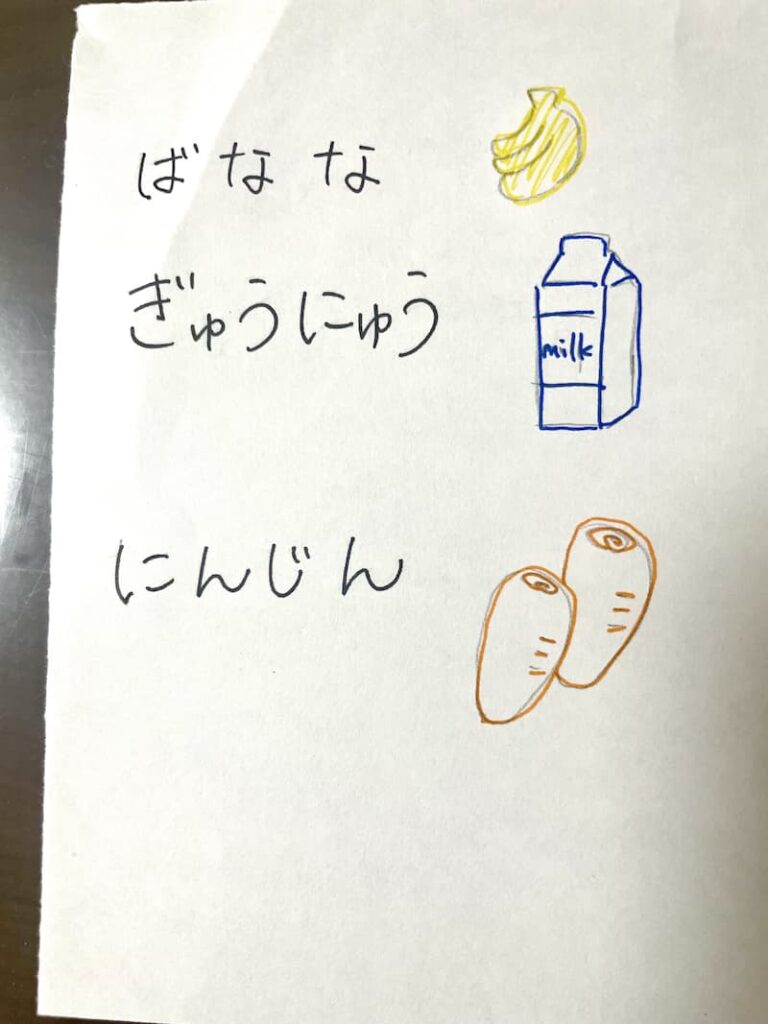 ばなな
ぎゅうにゅう
milk
にんじん